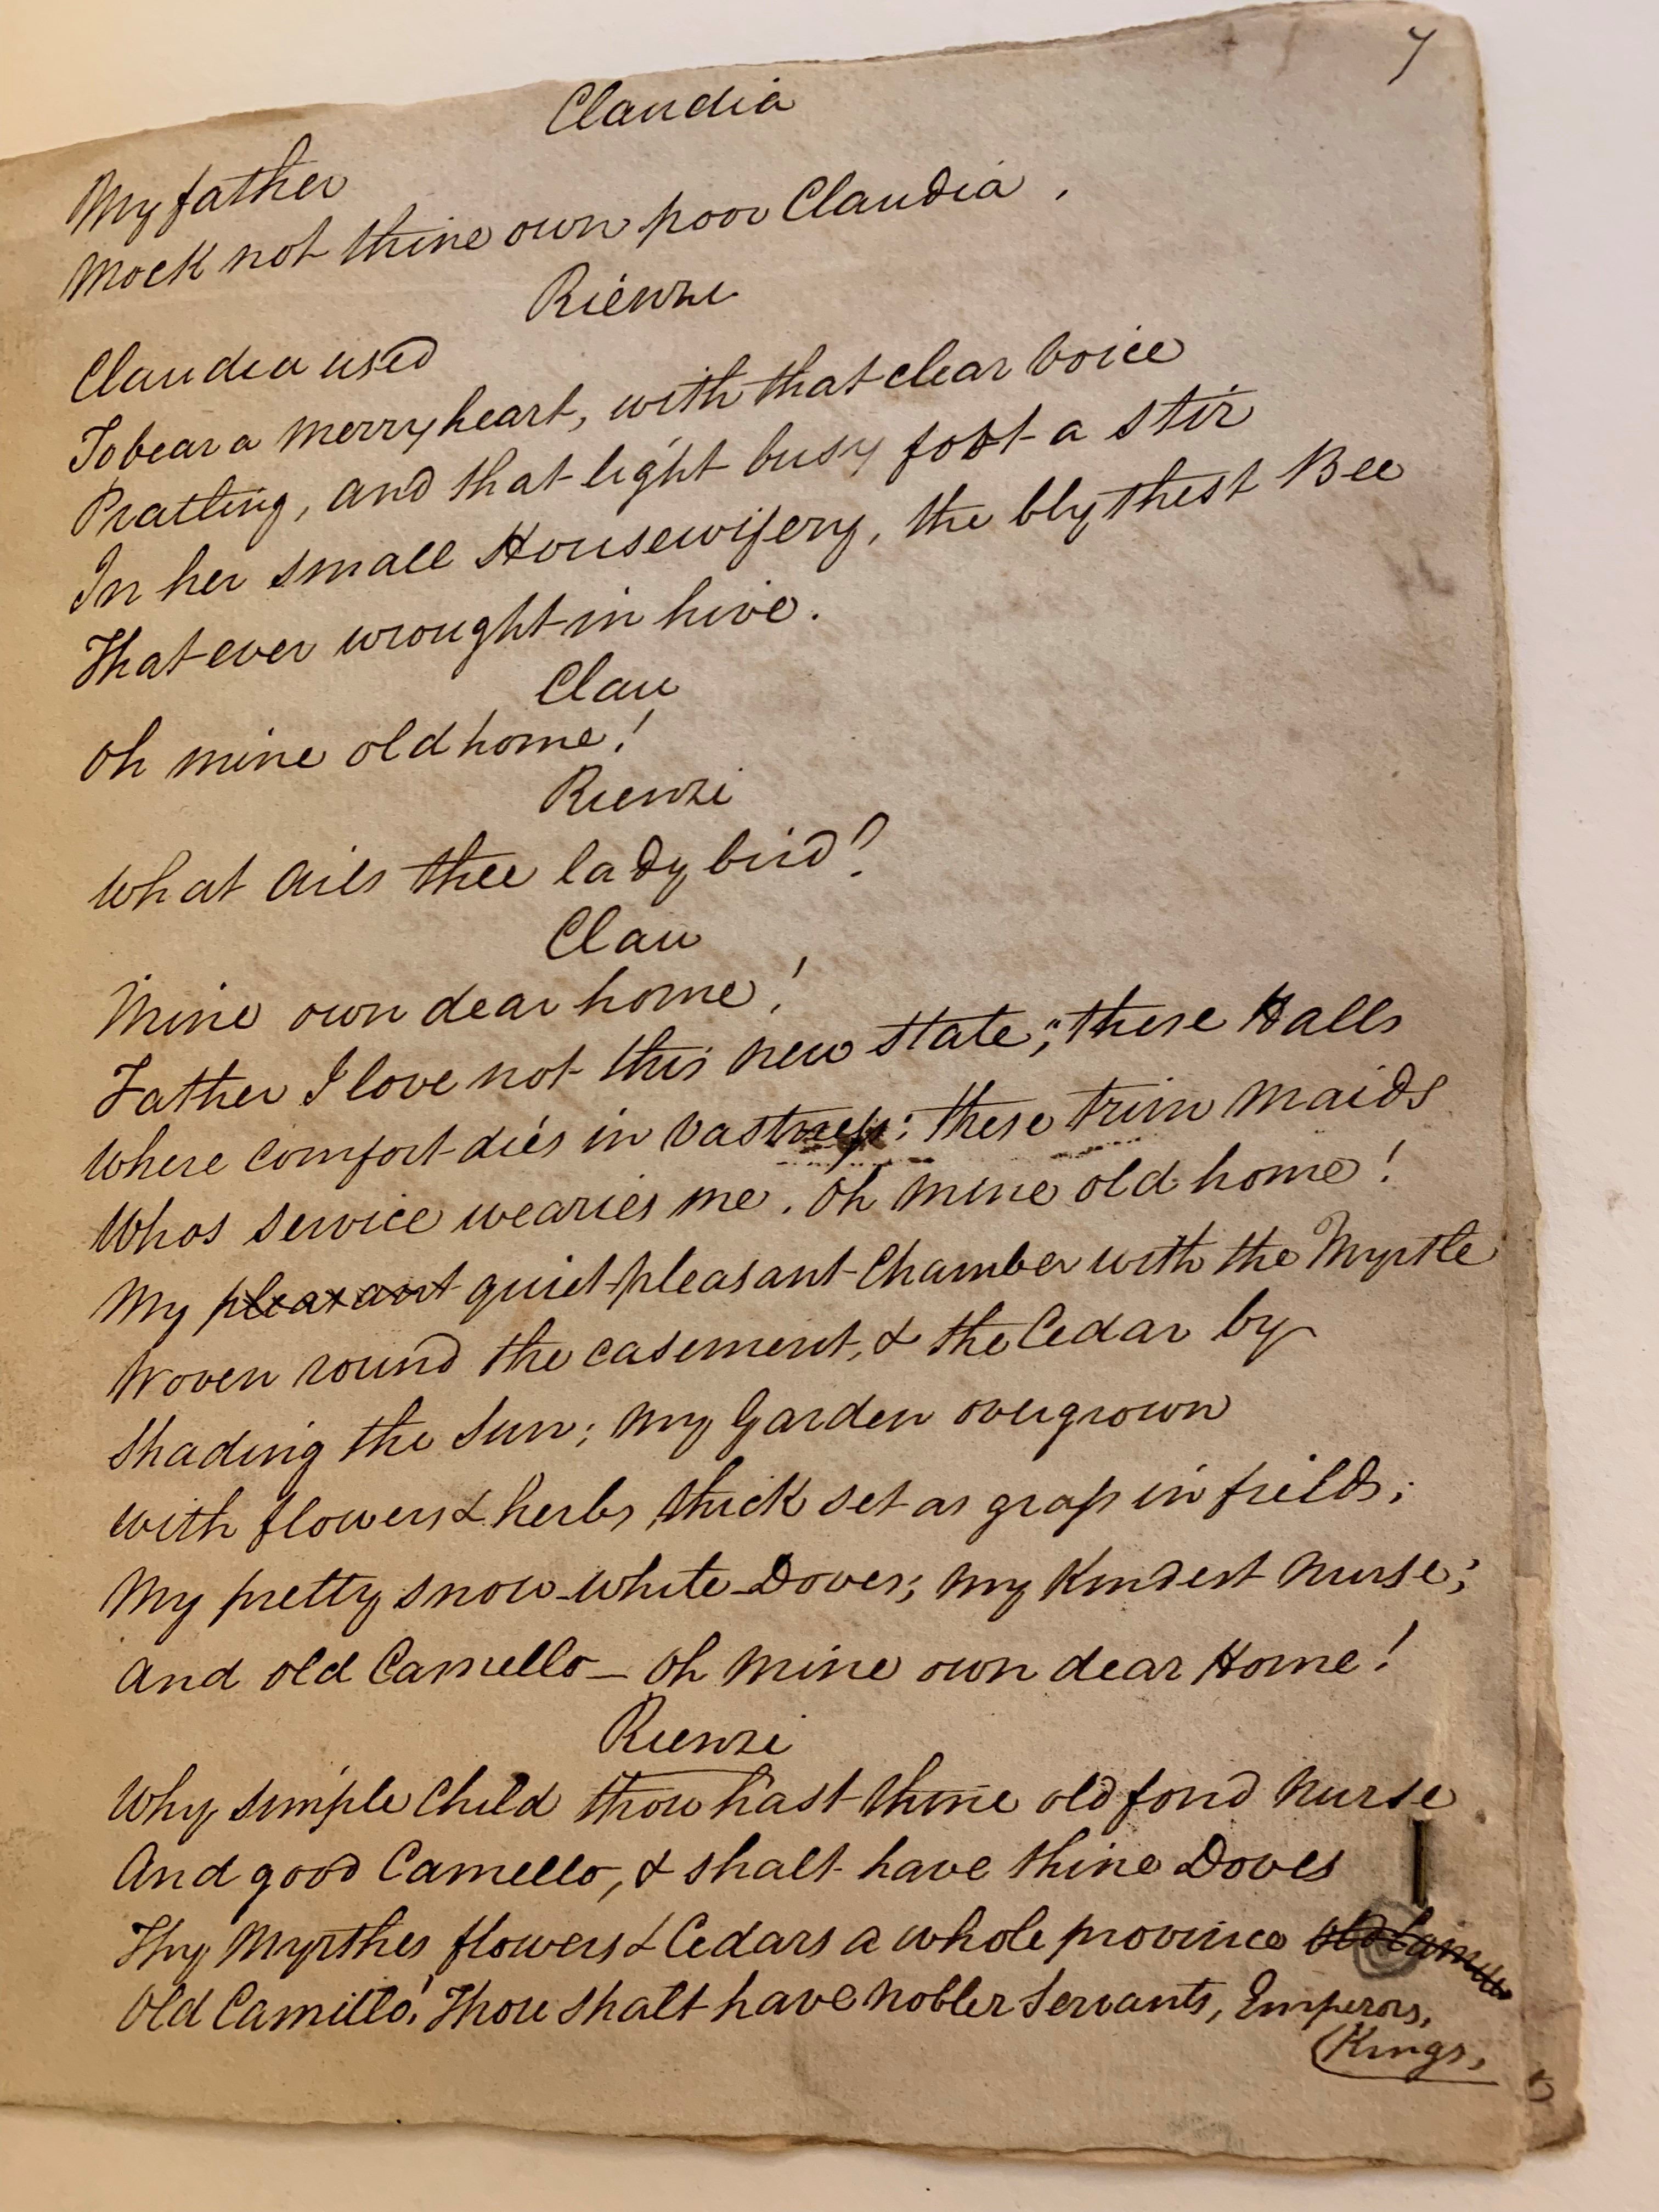 7
Claudia
My father
Mock not thine own poor Claudia.
Rienzi
Claudia used
To bear a merry heart, with that clear voice
Pratling, and that light busy foot a stir
In her small Housewifery, the blythest Bee
That ever wrought in hive.
Clau
Oh mine old home!
Rienzi
What ails thee lady bird?
Clau
Mine own dear home!
Father I love not this new state; these Halls
Where comfort dies in vastness; these trim maids
Whos service wearies me. Oh mine old home!
My pleasant quiet pleasant Chamber with the Myrtle
Woven round the casement, & the Cedar by
Shading the Sun; my Garden overgrown
with flowers & herbs, thick set as grass in fields;
My pretty snow-white Doves; my Kindest nurse;
And old Camello – Oh mine own dear Home!
Rienzi
Why simple Child thou hast thine old fond nurse
And good Camello, & shalt have thine Doves
Thy Myrthes flowers & Cedars a whole province
Old Camillo! Thou shalt have nobler Servants, Emperors,
(Kings,